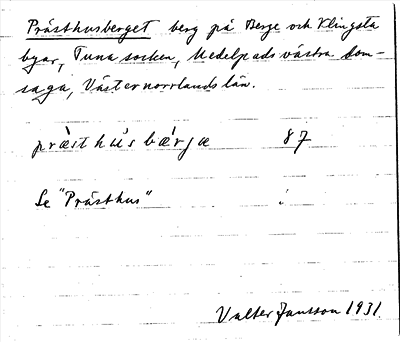 Prästhusberget berg på Berge och Klingsta
byar, Tuna socken, Medelpads västra dom-
saga, Västernorrlands län.
præ̀sthu̇́sbæ̀rja 87
Se "Prästhus"
Valter Jansson 1931.